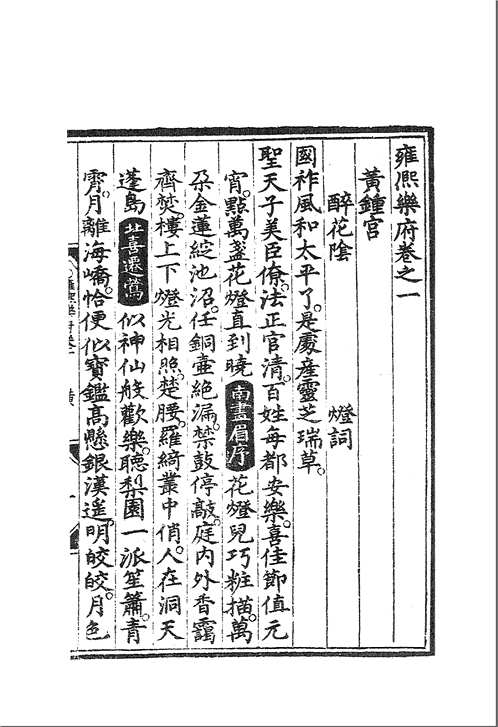 雍熙樂府卷之一
黃鍾宮
醉花陰 燈詞
國祚風和太平了。是處産靈芝瑞草。
聖天子美臣僚。法正官清。百姓每都安樂。喜佳節值元
宵。點萬盞花燈直到曉 南畫眉序 花燈兒巧粧描。萬
朶金蓮綻池沼。任銅壺絶漏。禁鼓停敲。庭內外香靄
齊焚。樓上下燈光相照。楚腰。羅綺叢中俏。人在洞天
蓬島 北喜遷鶯 似神仙般歡樂。聽梨園一派笙簫。青
霄。月離海嶠。恰便似寶鑑高懸銀漢遥。明皎皎。月色
雍熙樂府卷一 黃 一